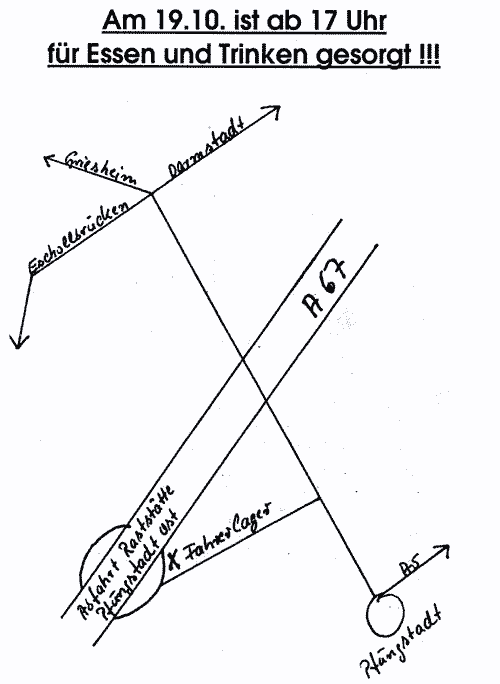 Am 19.10. ist ab 17 Uhr
für Essen und Trinken gesorgt !!!
Griesheim
Darmstadt
Eschollbrücken
A 67
Abfahrt Raststätte
Pfungstadt Ost
X Fahrerlager
A5
Pfungstadt